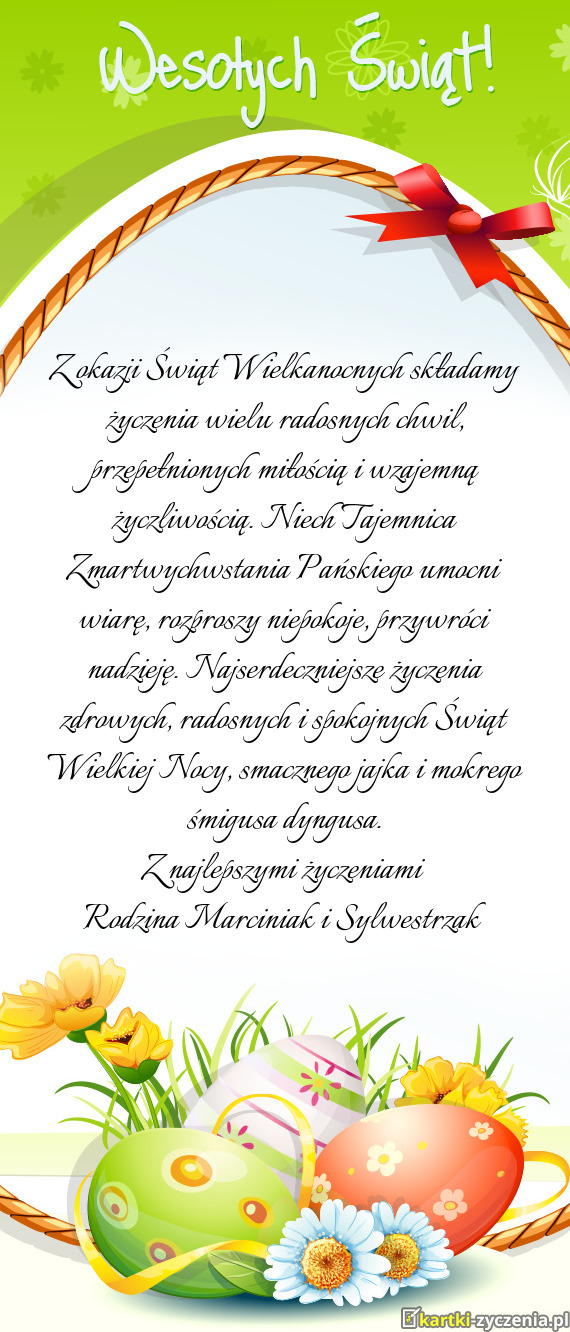 Wesołych Świąt!
Z okazji Świąt Wielkanocnych składamy
życzenia wielu radosnych chwil,
przepełnionych miłością i wzajemną
życzliwością. Niech Tajemnica
Zmartwychwstania Pańskiego umocni
wiarę, rozproszy niepokoje, przywróci
nadzieję. Najserdeczniejsze życzenia
zdrowych, radosnych i spokojnych Świąt
Wielkiej Nocy, smacznego jajka i mokrego
śmigusa dyngusa.
Z najlepszymi życzeniami
Rodzina Marciniak i Sylwestrzak
kartki-zyczenia.pl